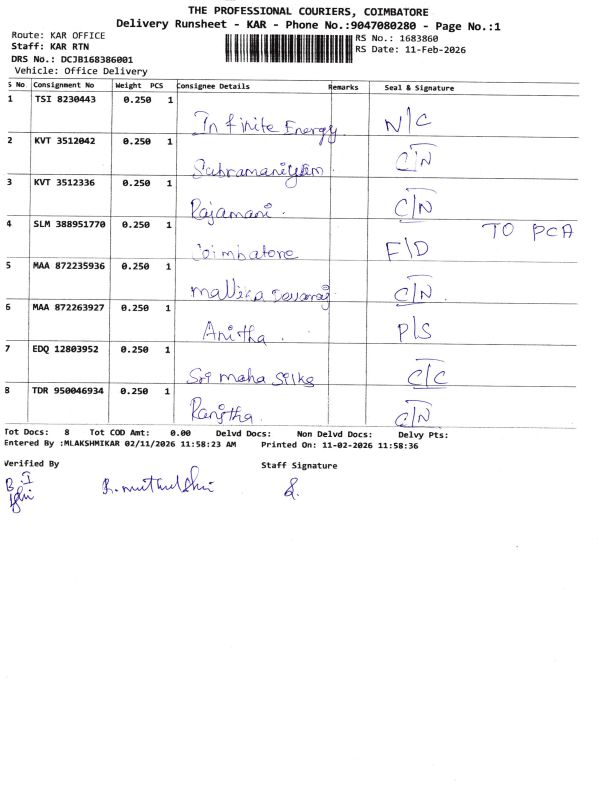 THE PROFESSIONAL COURIERS, COIMBATORE
Delivery Runsheet - KAR - Phone No.:9047080280 - Page No.:1
Route: KAR OFFICE
RS No.: 1683860
Staff: KAR RTN
RS Date: 11-Feb-2026
DRS No.: DCJB168386001
Vehicle: Office Delivery
S No Consignment No Weight PCS Consignee Details Remarks Seal & Signature
1 TSI 8230443 0.250 1 Infinite Energy N/C
2 KVT 3512042 0.250 1 Subramaniyam. C/N
3 KVT 3512336 0.250 1 Rajamani. C/N
4 SLM 388951770 0.250 1 Coimbatore F/D TO PCA
5 MAA 872235936 0.250 1 Mallika C/N.
6 MAA 872263927 0.250 1 Anitha. P/S
7 EDQ 12803952 0.250 1 Sri maha Silks C/C
8 TDR 950046934 0.250 1 Ranjtha. C/N
Tot Docs: 8 Tot COD Amt: 0.00 Delvd Docs: Non Delvd Docs: Delvy Pts:
Entered By :MLAKSHMIKAR 02/11/2026 11:58:23 AM Printed On: 11-02-2026 11:58:36
Verified By Staff Signature